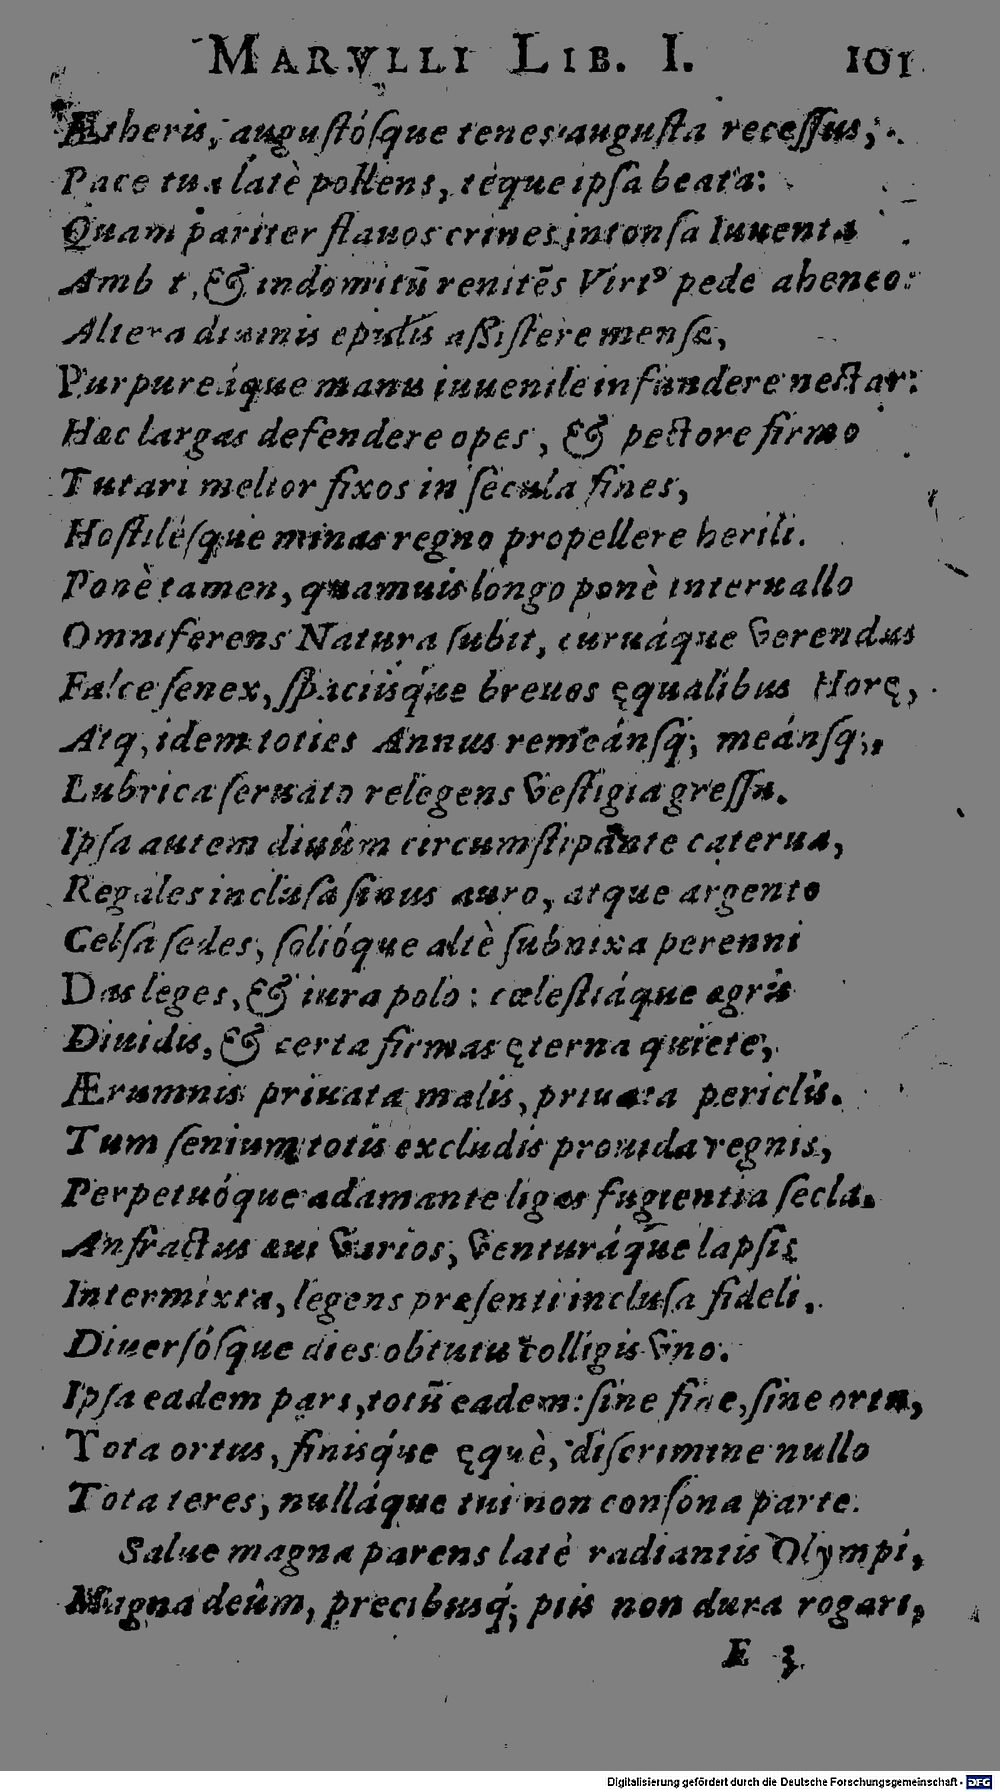 MARVLLI LIB. I. 101
Ætheris, augustósque tenes augusta recessus,
Pace tua latè pollens, téque ipsa beata:
Quam pariter flauos crines intonsa Iuuenta
Amb t, & indomitũ renitẽs Virtꝰ pede aheneo:
Altera diuinis epulis aßistere mensæ,
Purpureáque manu iuuenile infundere nectar:
Hæc largas defendere opes, & pectore firmo
Tutari melior fixos in sècula fines,
Hostilésque minas regno propellere herili.
Ponè tamen, quamuis longo ponè interuallo
Omniferens Natura subit, curuáque verendus
Falce senex, spaciisq́ue breuos ęqualibus Horę,
Atq, idem toties Annus remeánsq; meánsq;,
Lubrica seruato relegens vestigia gressu.
Ipsa autem diuûm circumstipante caterua,
Regales inclusa sinus auro, atque argento
Celsa sedes, solióque altè subnixa perenni
Das leges, & iura polo: cœlestiáque ægris
Diuidis, & certa firmas ęterna quiete,
Ærumnis priuata malis, priuata periclis.
Tum senium totis excludis prouida regnis,
Perpetuóque adamante ligas fugientia secla.
Anfractus æui varios, venturáq̃ue lapsis
Intermixta, legens præsenti inclusa fideli,
Diuersósque dies obtutu colligis vno.
Ipsa eadem pars, totũ eadem: sine fine, sine ortu,
Tota ortus, finisq́ue ęquè, discrimine nullo
Tota teres, nulláque tui non consona parte.
Salue magna parens latè radiantis Olympi,
Magna deûm, precibusq́; piis non dura rogari,
E 3
Digitalisierung gefördert durch die Deutsche Forschungsgemeinschaft - DFG